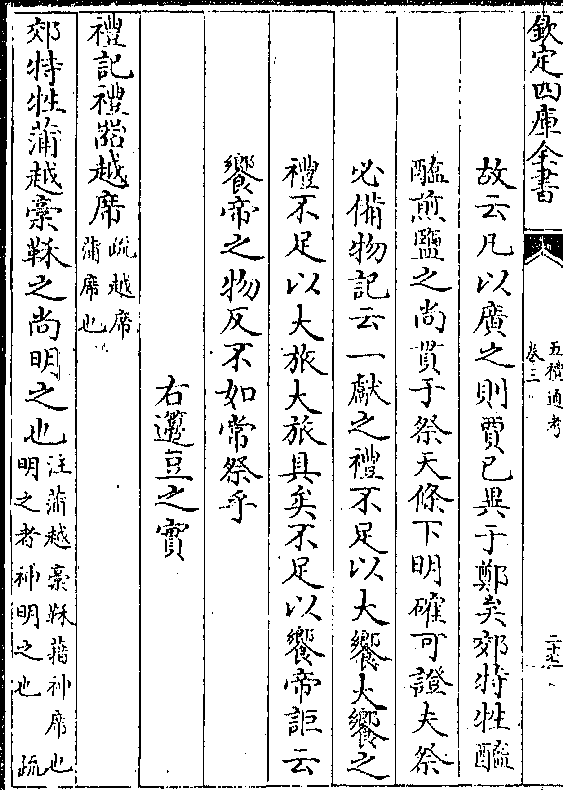 欽定四庫全書
五禮通考
卷三
二十九
故云凡以廣之則賈已異于鄭矣郊特牲醯
醢煎鹽之尚貫于祭天條下明確可證夫祭
必備物記云一獻之禮不足以大饗大饗之
禮不足以大旅大旅具矣不足以饗帝詎云
饗帝之物反不如常祭乎
右籩豆之實
禮記禮器越席
疏越席
蒲席也
郊特牲蒲越稾鞂之尚明之也
注蒲越稾鞂藉神席也
明之者神明之也　疏